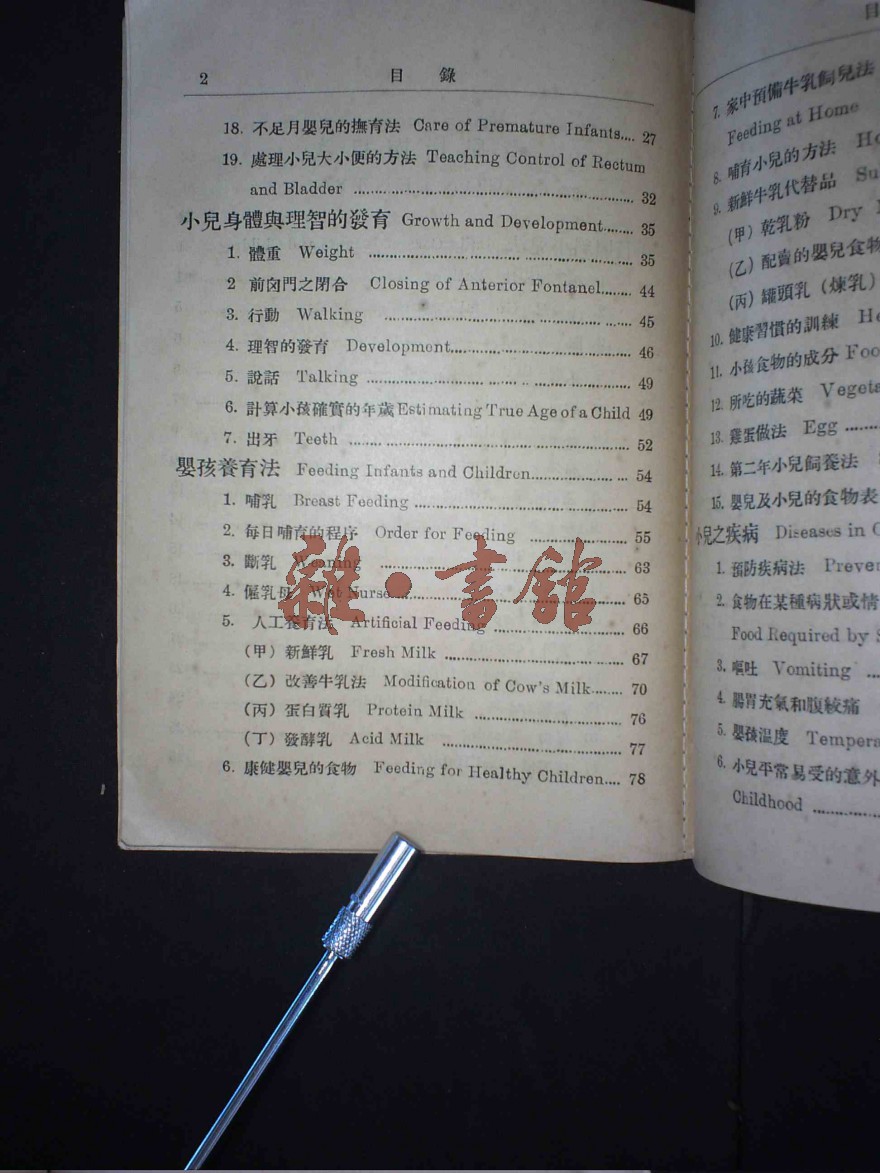 2 目 錄
18. 不足月嬰兒的撫育法 Care of Premature Infants.... 27
19. 處理小兒大小便的方法 Teaching Control of Rectum
and Bladder ........ 32
小兒身體與理智的發育 Growth and Development........ 35
1. 體重 Weight ........ 35
2 前囟門之閉合 Closing of Anterior Fontanel........ 44
3. 行動 Walking ........ 45
4. 理智的發育 Development........ 46
5. 說話 Talking ........ 49
6. 計算小孩確實的年歲 Estimating True Age of a Child 49
7. 出牙 Teeth ........ 52
嬰孩養育法 Feeding Infants and Children........ 54
1. 哺乳 Breast Feeding ........ 54
2. 每日哺育的程序 Order for Feeding ........ 55
3. 斷乳 Weaning ........ 63
4. 僱乳母 Wet Nurse........ 65
5. 人工養育法 Artificial Feeding ........ 66
(甲) 新鮮乳 Fresh Milk ........ 67
(乙) 改善牛乳法 Modification of Cow's Milk........ 70
(丙) 蛋白質乳 Protein Milk ........ 76
(丁) 發酵乳 Acid Milk ........ 77
6. 康健嬰兒的食物 Feeding for Healthy Children.... 78
雜·書館
目
7. 家中預備牛乳飼兒法
Feeding at Home
8. 哺育小兒的方法 Ho
9. 新鮮牛乳代替品 Su
(甲) 乾乳粉 Dry
(乙) 配賣的嬰兒食物
(丙) 罐頭乳 (煉乳)
10. 健康習慣的訓練 He
11. 小孩食物的成分 Foo
12. 所吃的蔬菜 Vegeta
13. 雞蛋做法 Egg ........
14. 第二年小兒飼養法
15. 嬰兒及小兒的食物表
小兒之疾病 Diseases in C
1. 預防疾病法 Preven
2. 食物在某種病狀或情
Food Required by S
3. 嘔吐 Vomiting ....
4. 腸胃充氣和腹絞痛
5. 嬰孩溫度 Tempera
6. 小兒平常易受的意外
Childhood ........